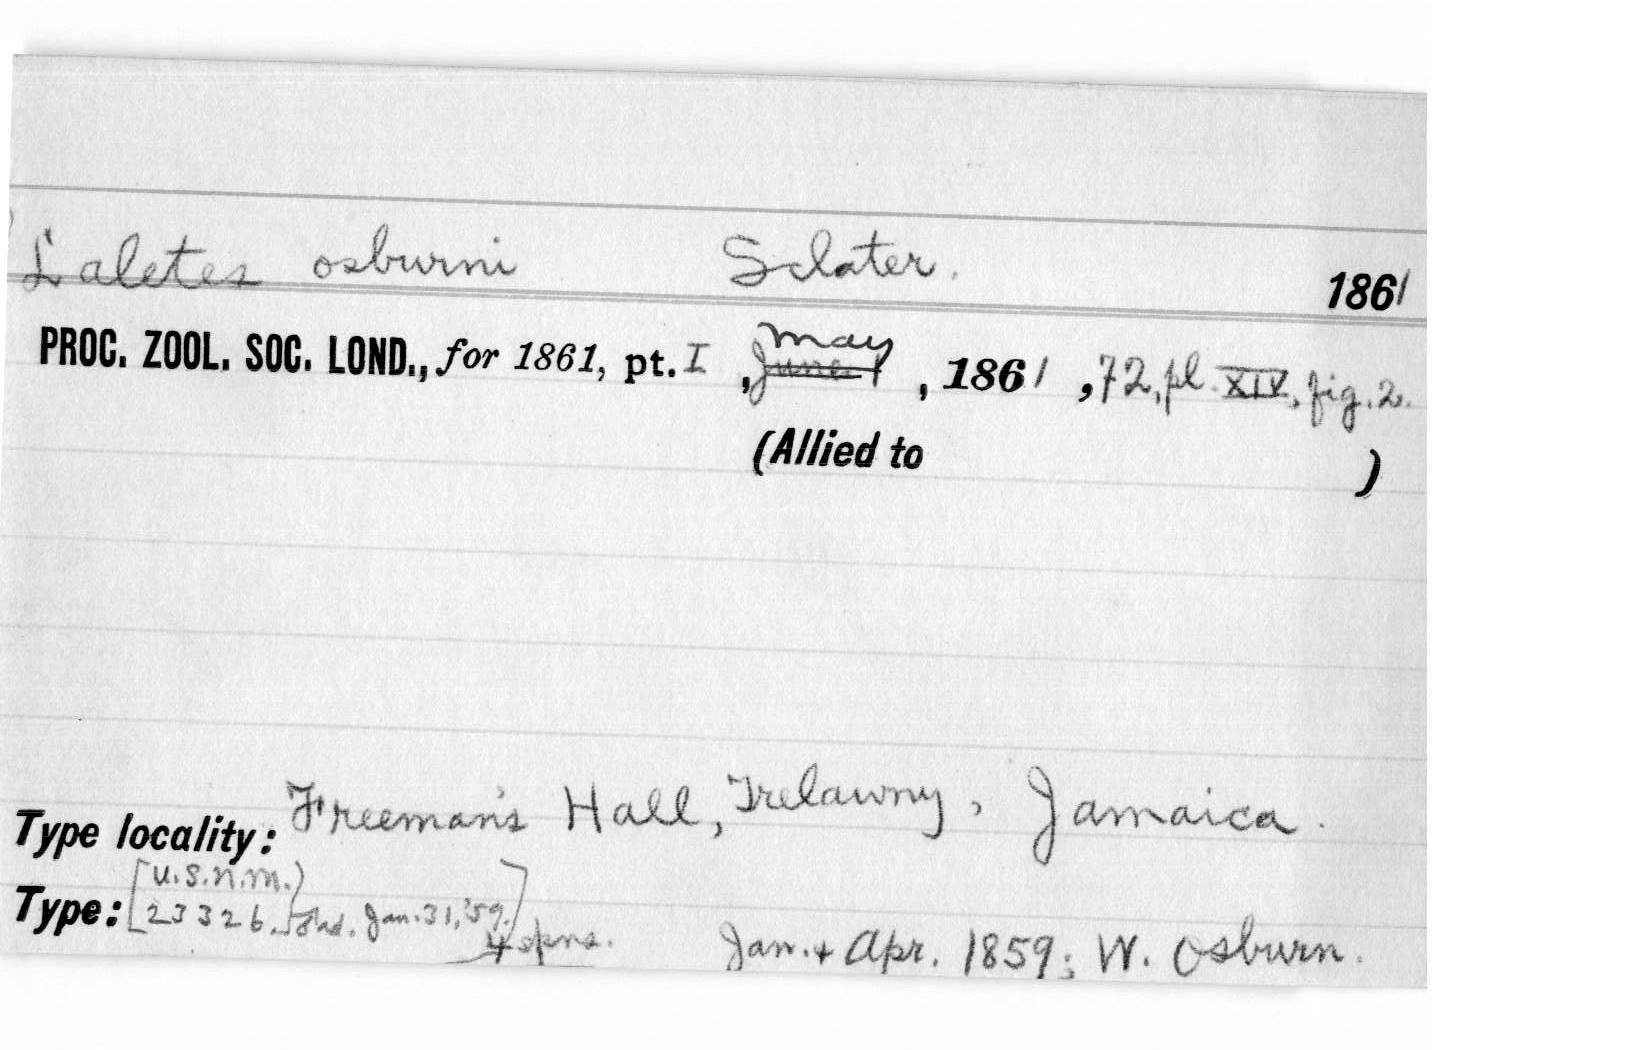 Laletes osburni Sclater. 1861
PROC. ZOOL. SOC. LOND., for 1861, pt. I, May June 1, 1861, 72, pl. XIV, fig. 2.
(Allied to )
Type locality: Freeman's Hall, Trelawny, Jamaica.
[U.S.N.M.)
Type: 23326. Jan. 31, '59.]
4 spns. Jan. + Apr. 1859; W. Osburn.